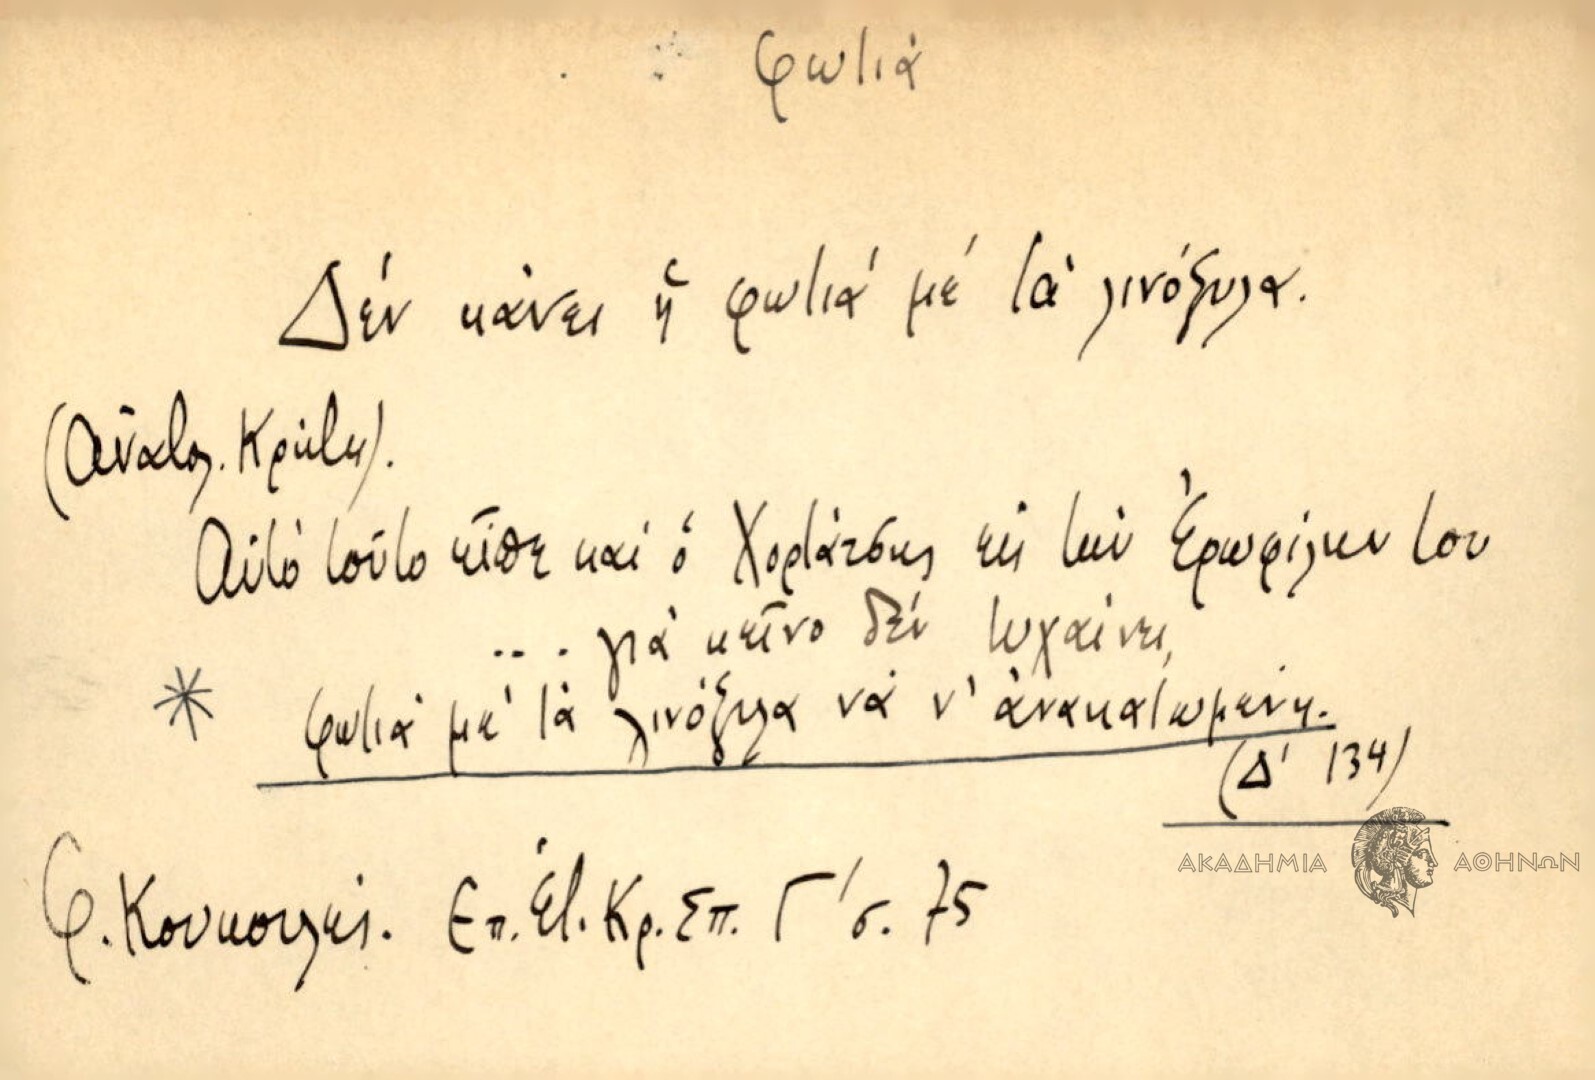 φωτιά
Δέν κάνει ἡ φωτιά μέ τά λινόξυλα.
(Ἀνατολ. Κρήτη).
Αὐτό τοῦτο εἶπε καί ὁ Χορτάτσης εἰς τήν Ἐρωφίλην του
... γιά κεῖνο δέν τυχαίνει,
* φωτιά μέ τά λινόξυλα νά ν' ἀνακατωμένη.
(Δ' 134)
Φ. Κουκουλές. Ἐπ. Ἑτ. Κρ. Σπ. Γ' σ. 75
ΑΚΑΔΗΜΙΑ ΑΘΗΝΩΝ